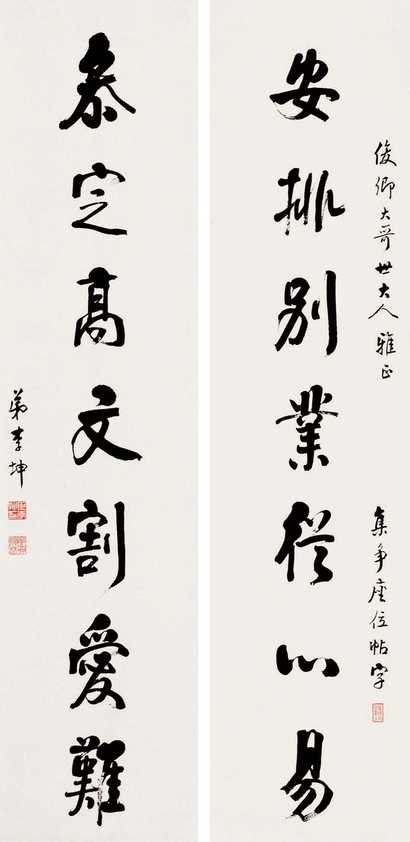 俊卿大哥世大人雅正
集爭座位帖字
安排別業從心易
叅定高文割愛難
弟李坤